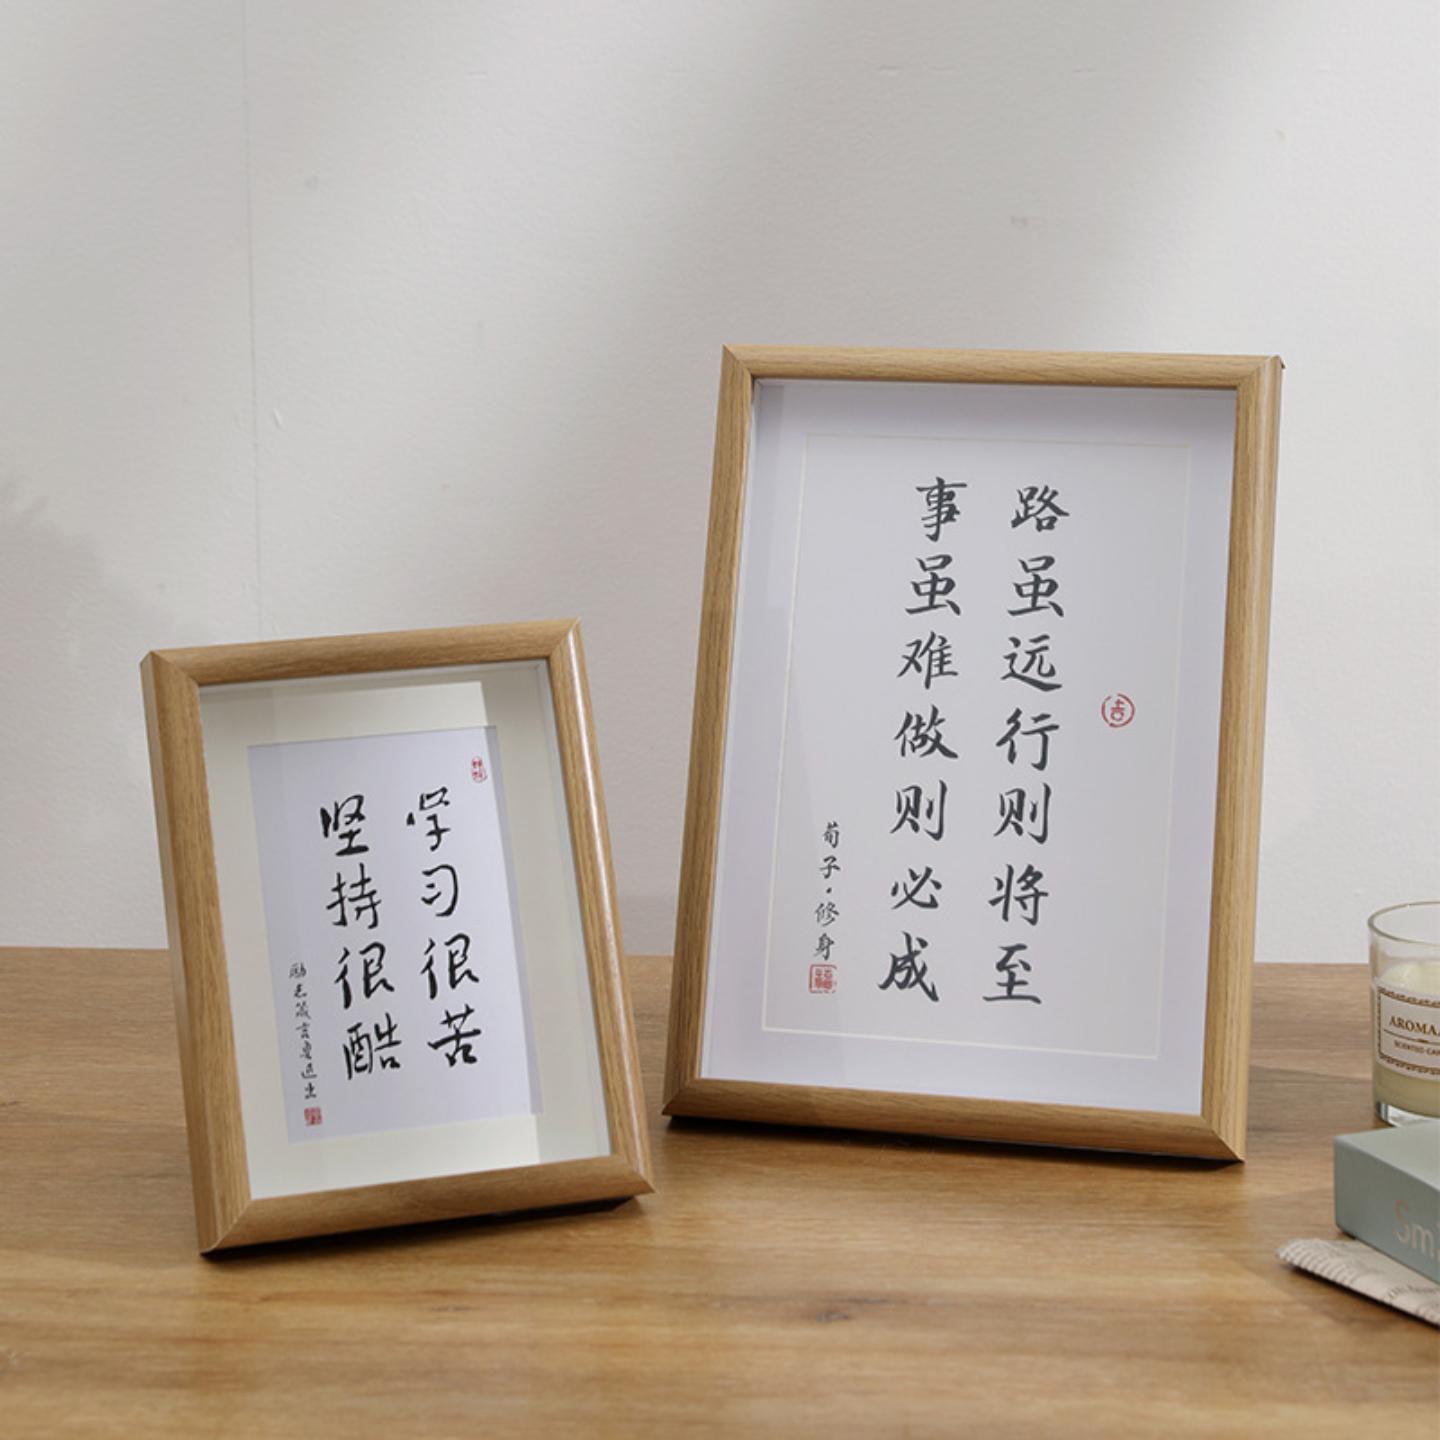 学习很苦
坚持很酷
励志箴言
路虽远行则将至
事虽难做则必成
荀子·修身
吉
福
AROMA
SCENTED CAN
Sm